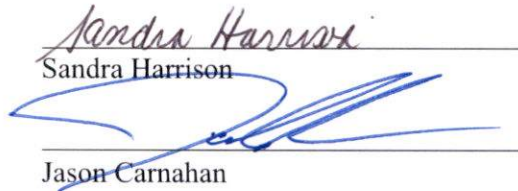 Sandra Harrison
Sandra Harrison
Jason Carnahan